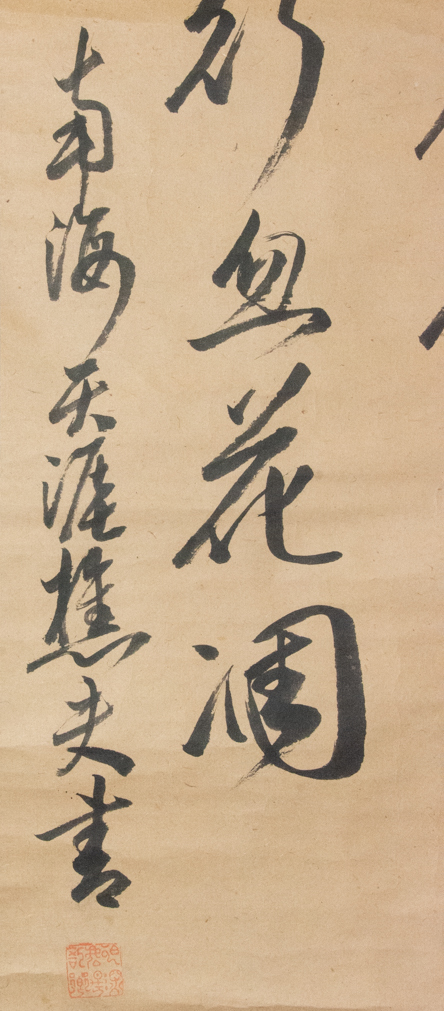 忽花凋
南海天涯樵夫書